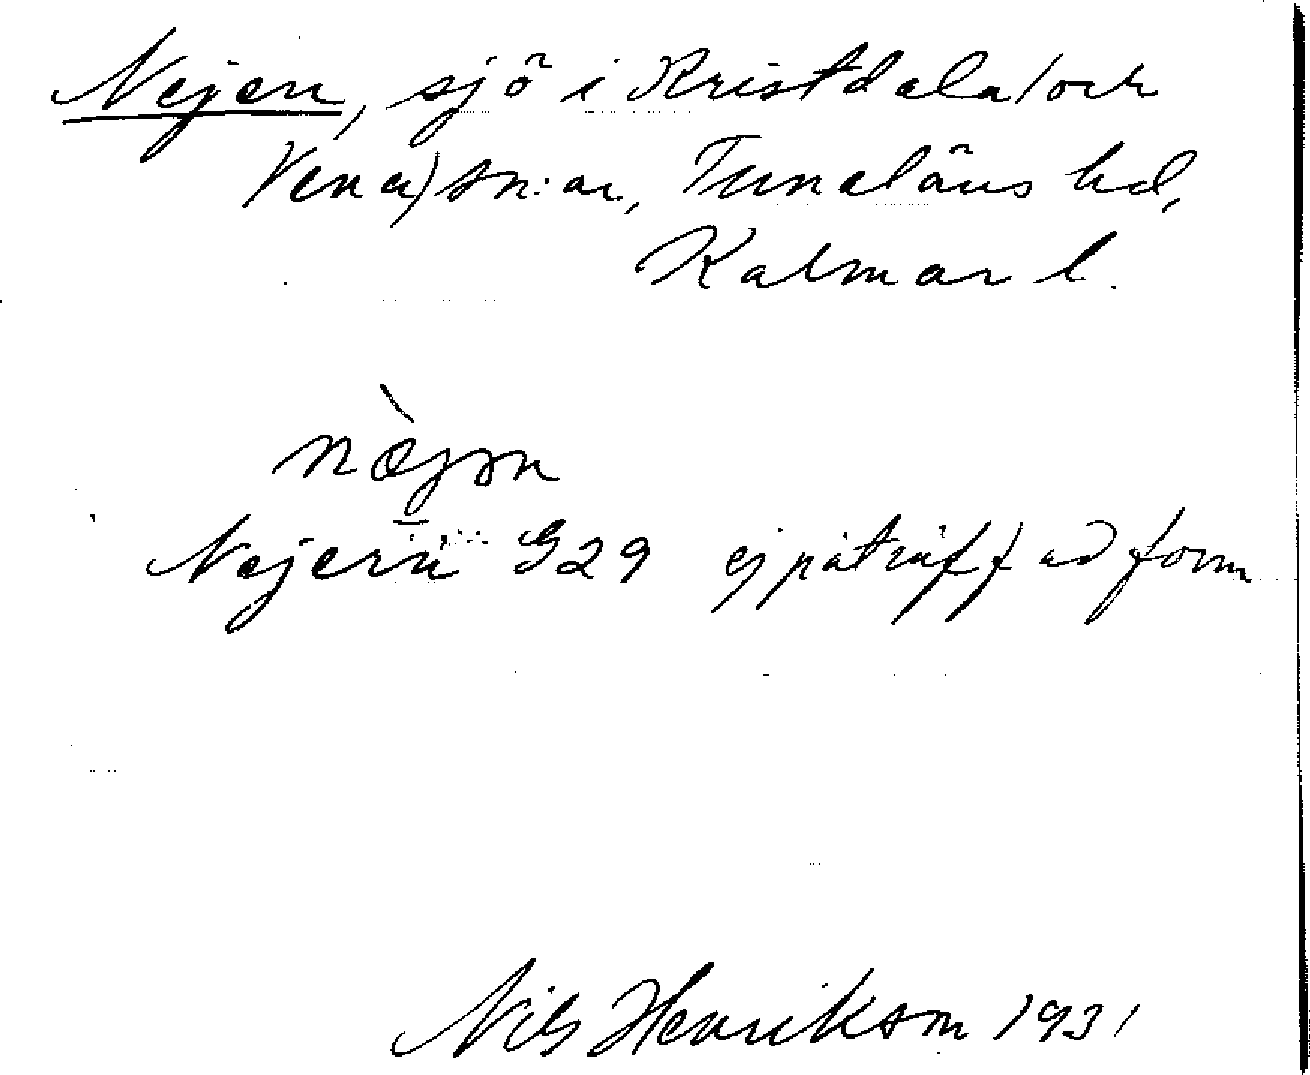 Nejen, sjö i Kristdala (och
Vena) sn:ar, Tunaläns hd,
Kalmar l.
næ̀jən
Nejern G29 ej påträffad form
Nils Henrikson 1931